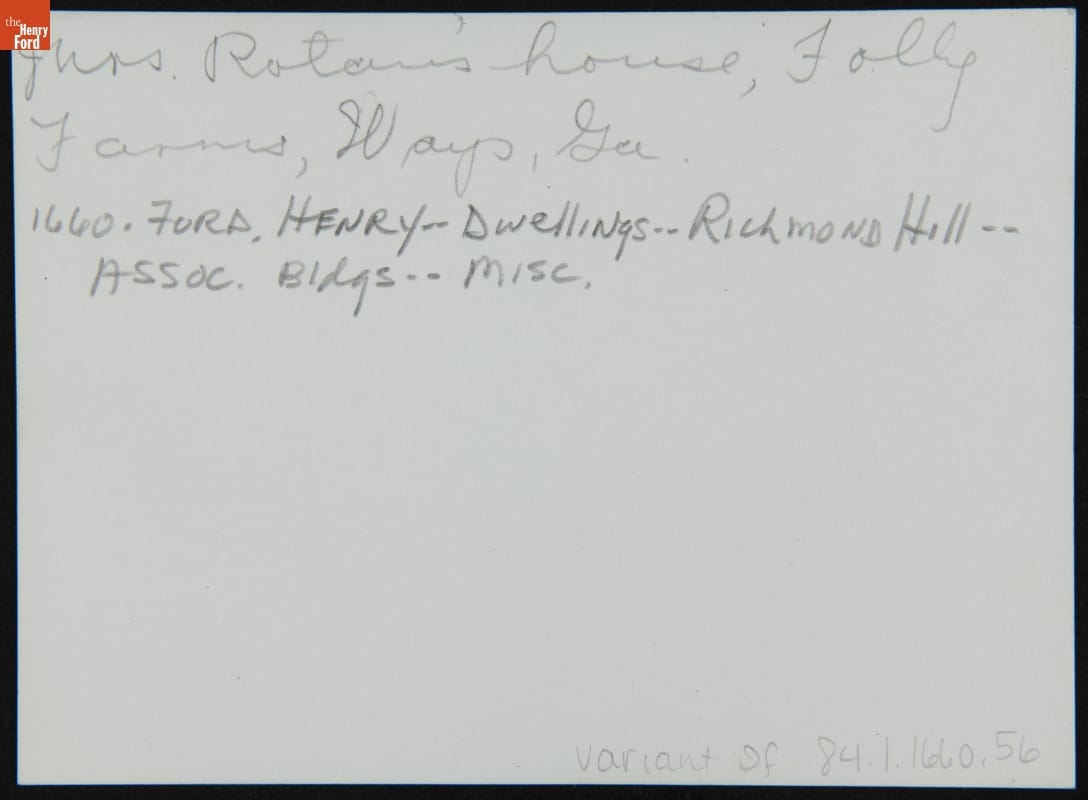 the Henry Ford
Mrs. Rotan's house, Folly
Farms, Ways, Ga.
1660. FORD, HENRY-- Dwellings-- Richmond Hill--
Assoc. Bldgs-- Misc.
variant of 84.1.1660.56